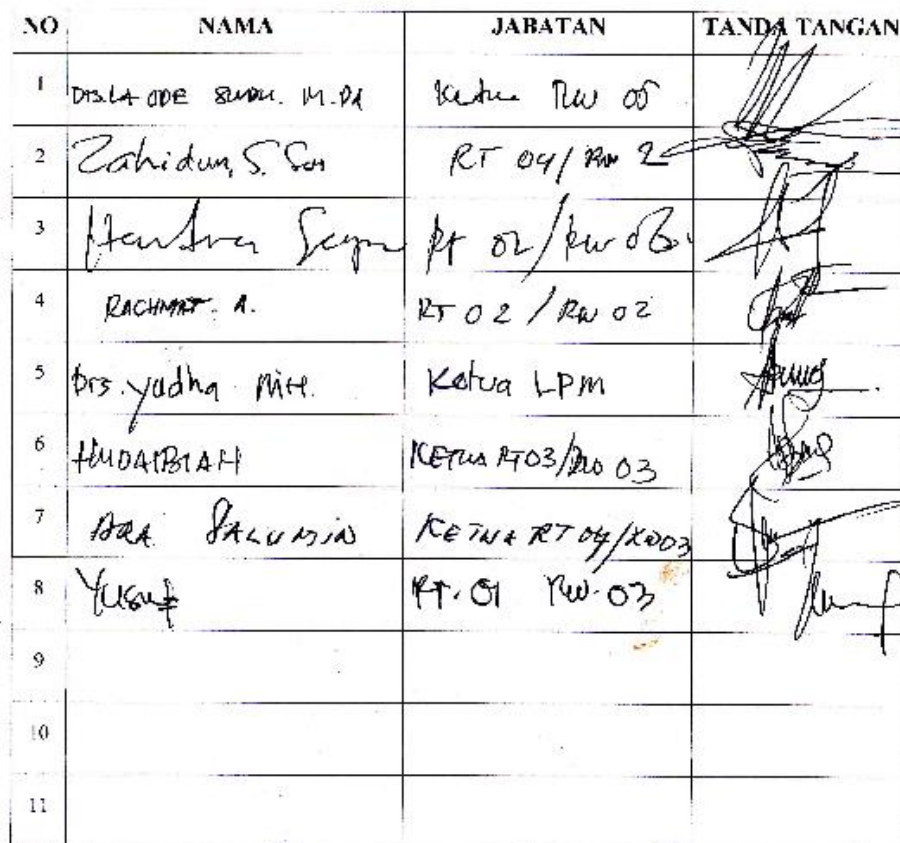 NO NAMA JABATAN TANDA TANGAN
1 Drs. LA ODE M.Pd Ketua RW 05
2 Zahidun, S. Sos RT 04/RW 2
3 RT 02/RW 03
4 RACHMAT. A. RT 02 / RW 02
5 Drs. Yudha Ketua LPM
6 HUDAIBIAH KETUA RT03/RW 03
7 ARA KETUA RT 04/RW03
8 Yusuf RT. 01 RW. 03
9
10
11